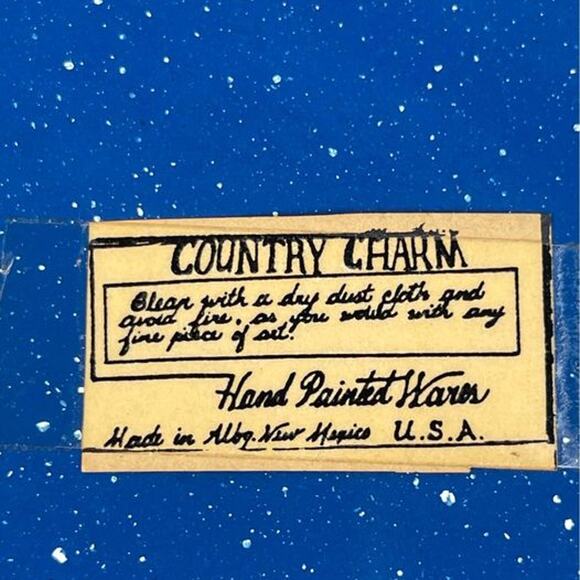 COUNTRY CHARM
Clean with a dry dust cloth and
avoid fire, as you would with any
fine piece of art.
Hand Painted Wares
Made in Albq. New Mexico U.S.A.